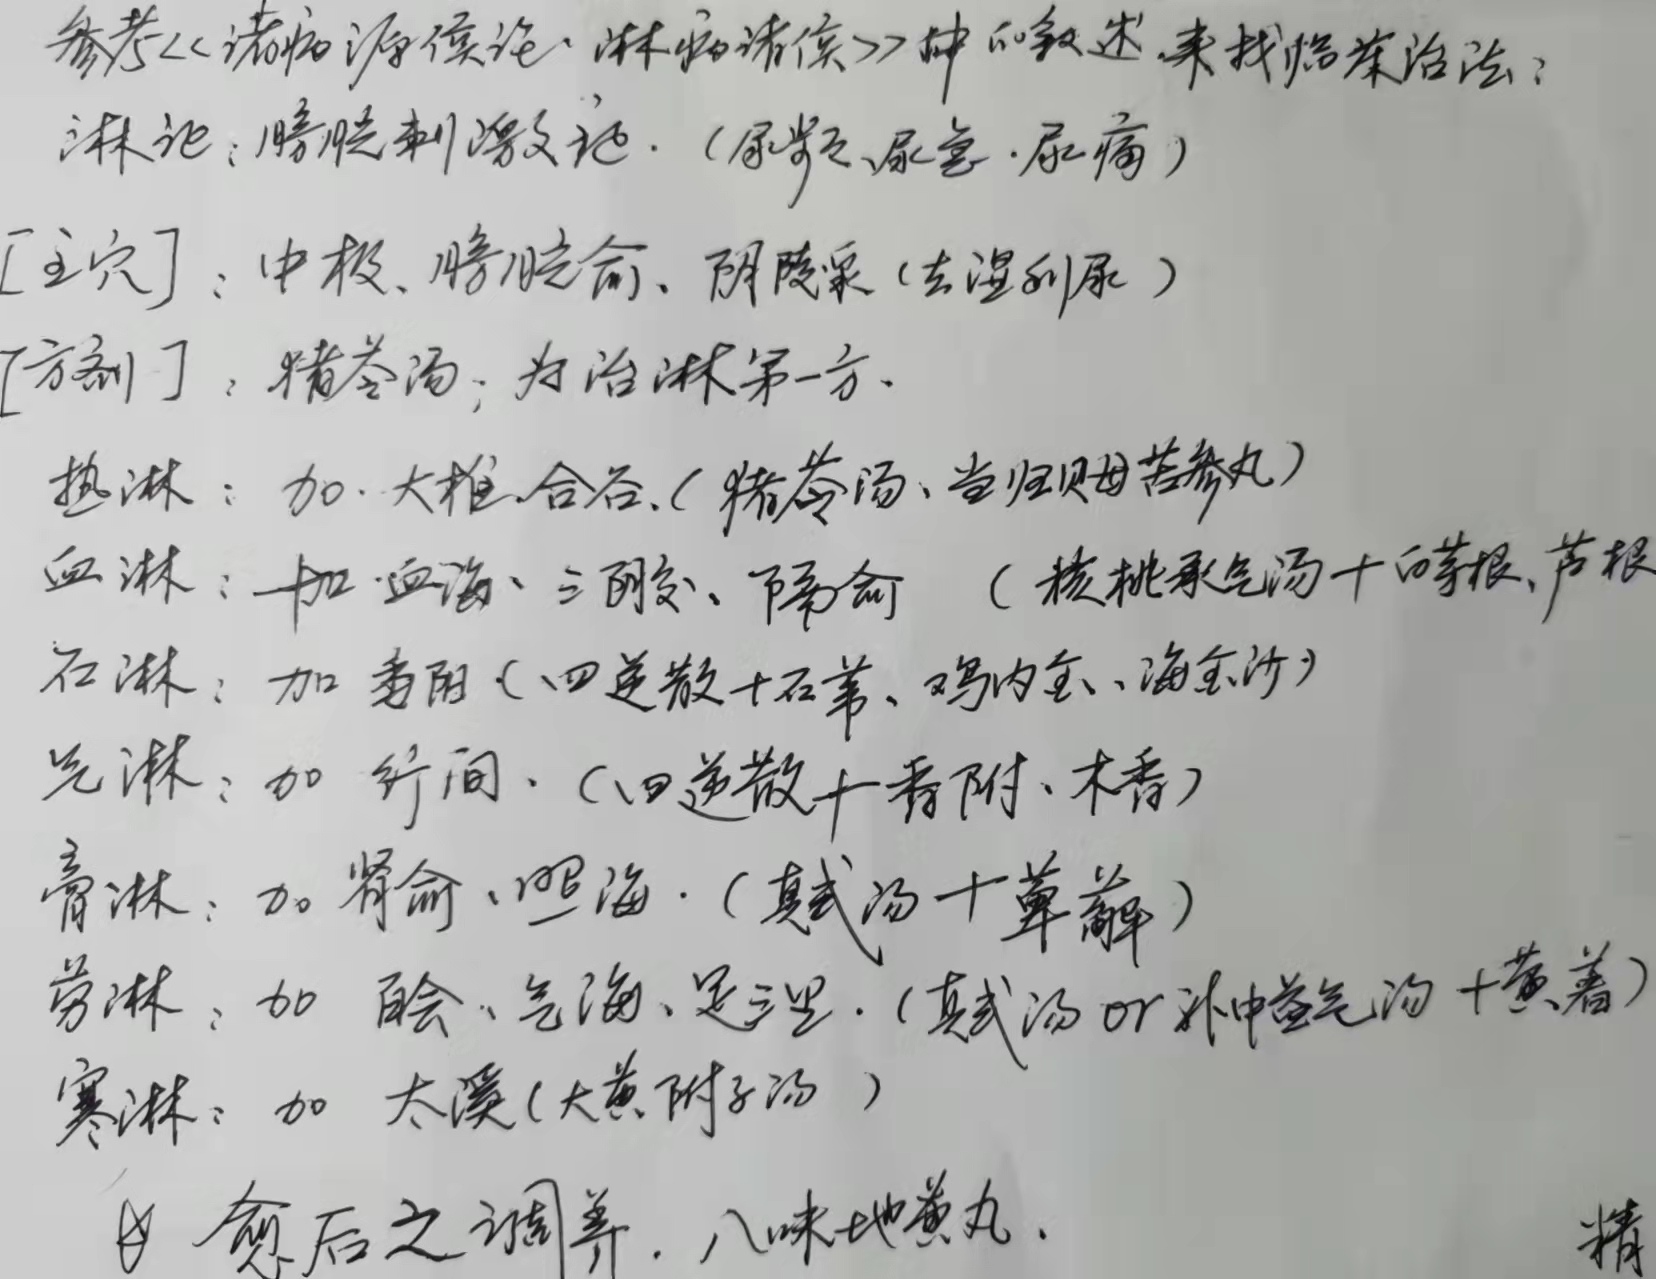 参考<<诸病源侯论·淋病诸侯>>中的叙述,来找临床治法:
淋证:膀胱刺激证.(尿频、尿急.尿痛)
[主穴]:中极、膀胱俞、阴陵泉(去湿利尿)
[方剂]:猪苓汤;为治淋第一方.
热淋:加.大椎.合谷.(猪苓汤、当归贝母苦参丸)
血淋:加血海、三阴交、膈俞 (核桃承气汤+白茅根、芦根
石淋:加委阳(四逆散+石苇、鸡内金、海金沙)
气淋:加 行间.(四逆散+香附、木香)
膏淋:加肾俞、照海.(真武汤+萆薢)
劳淋:加 百会、气海、足三里.(真武汤or补中益气汤+黄着)
寒淋:加 太溪(大黄附子汤)
愈后之调养.八味地黄丸.
精